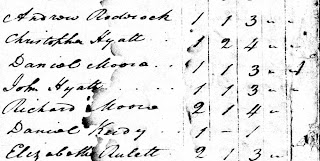 Andrew Rodrock 1 1 3 - -
Christopher Hyatt . . 1 2 4 - -
Daniel Moore . . . 1 1 3 - 4
John Hyatt . . . . 1 1 3 - -
Richard Moore 2 1 4 -
Daniel Keedy . . . 1 - 1
Elizabeth Aulett 2 1 3 -